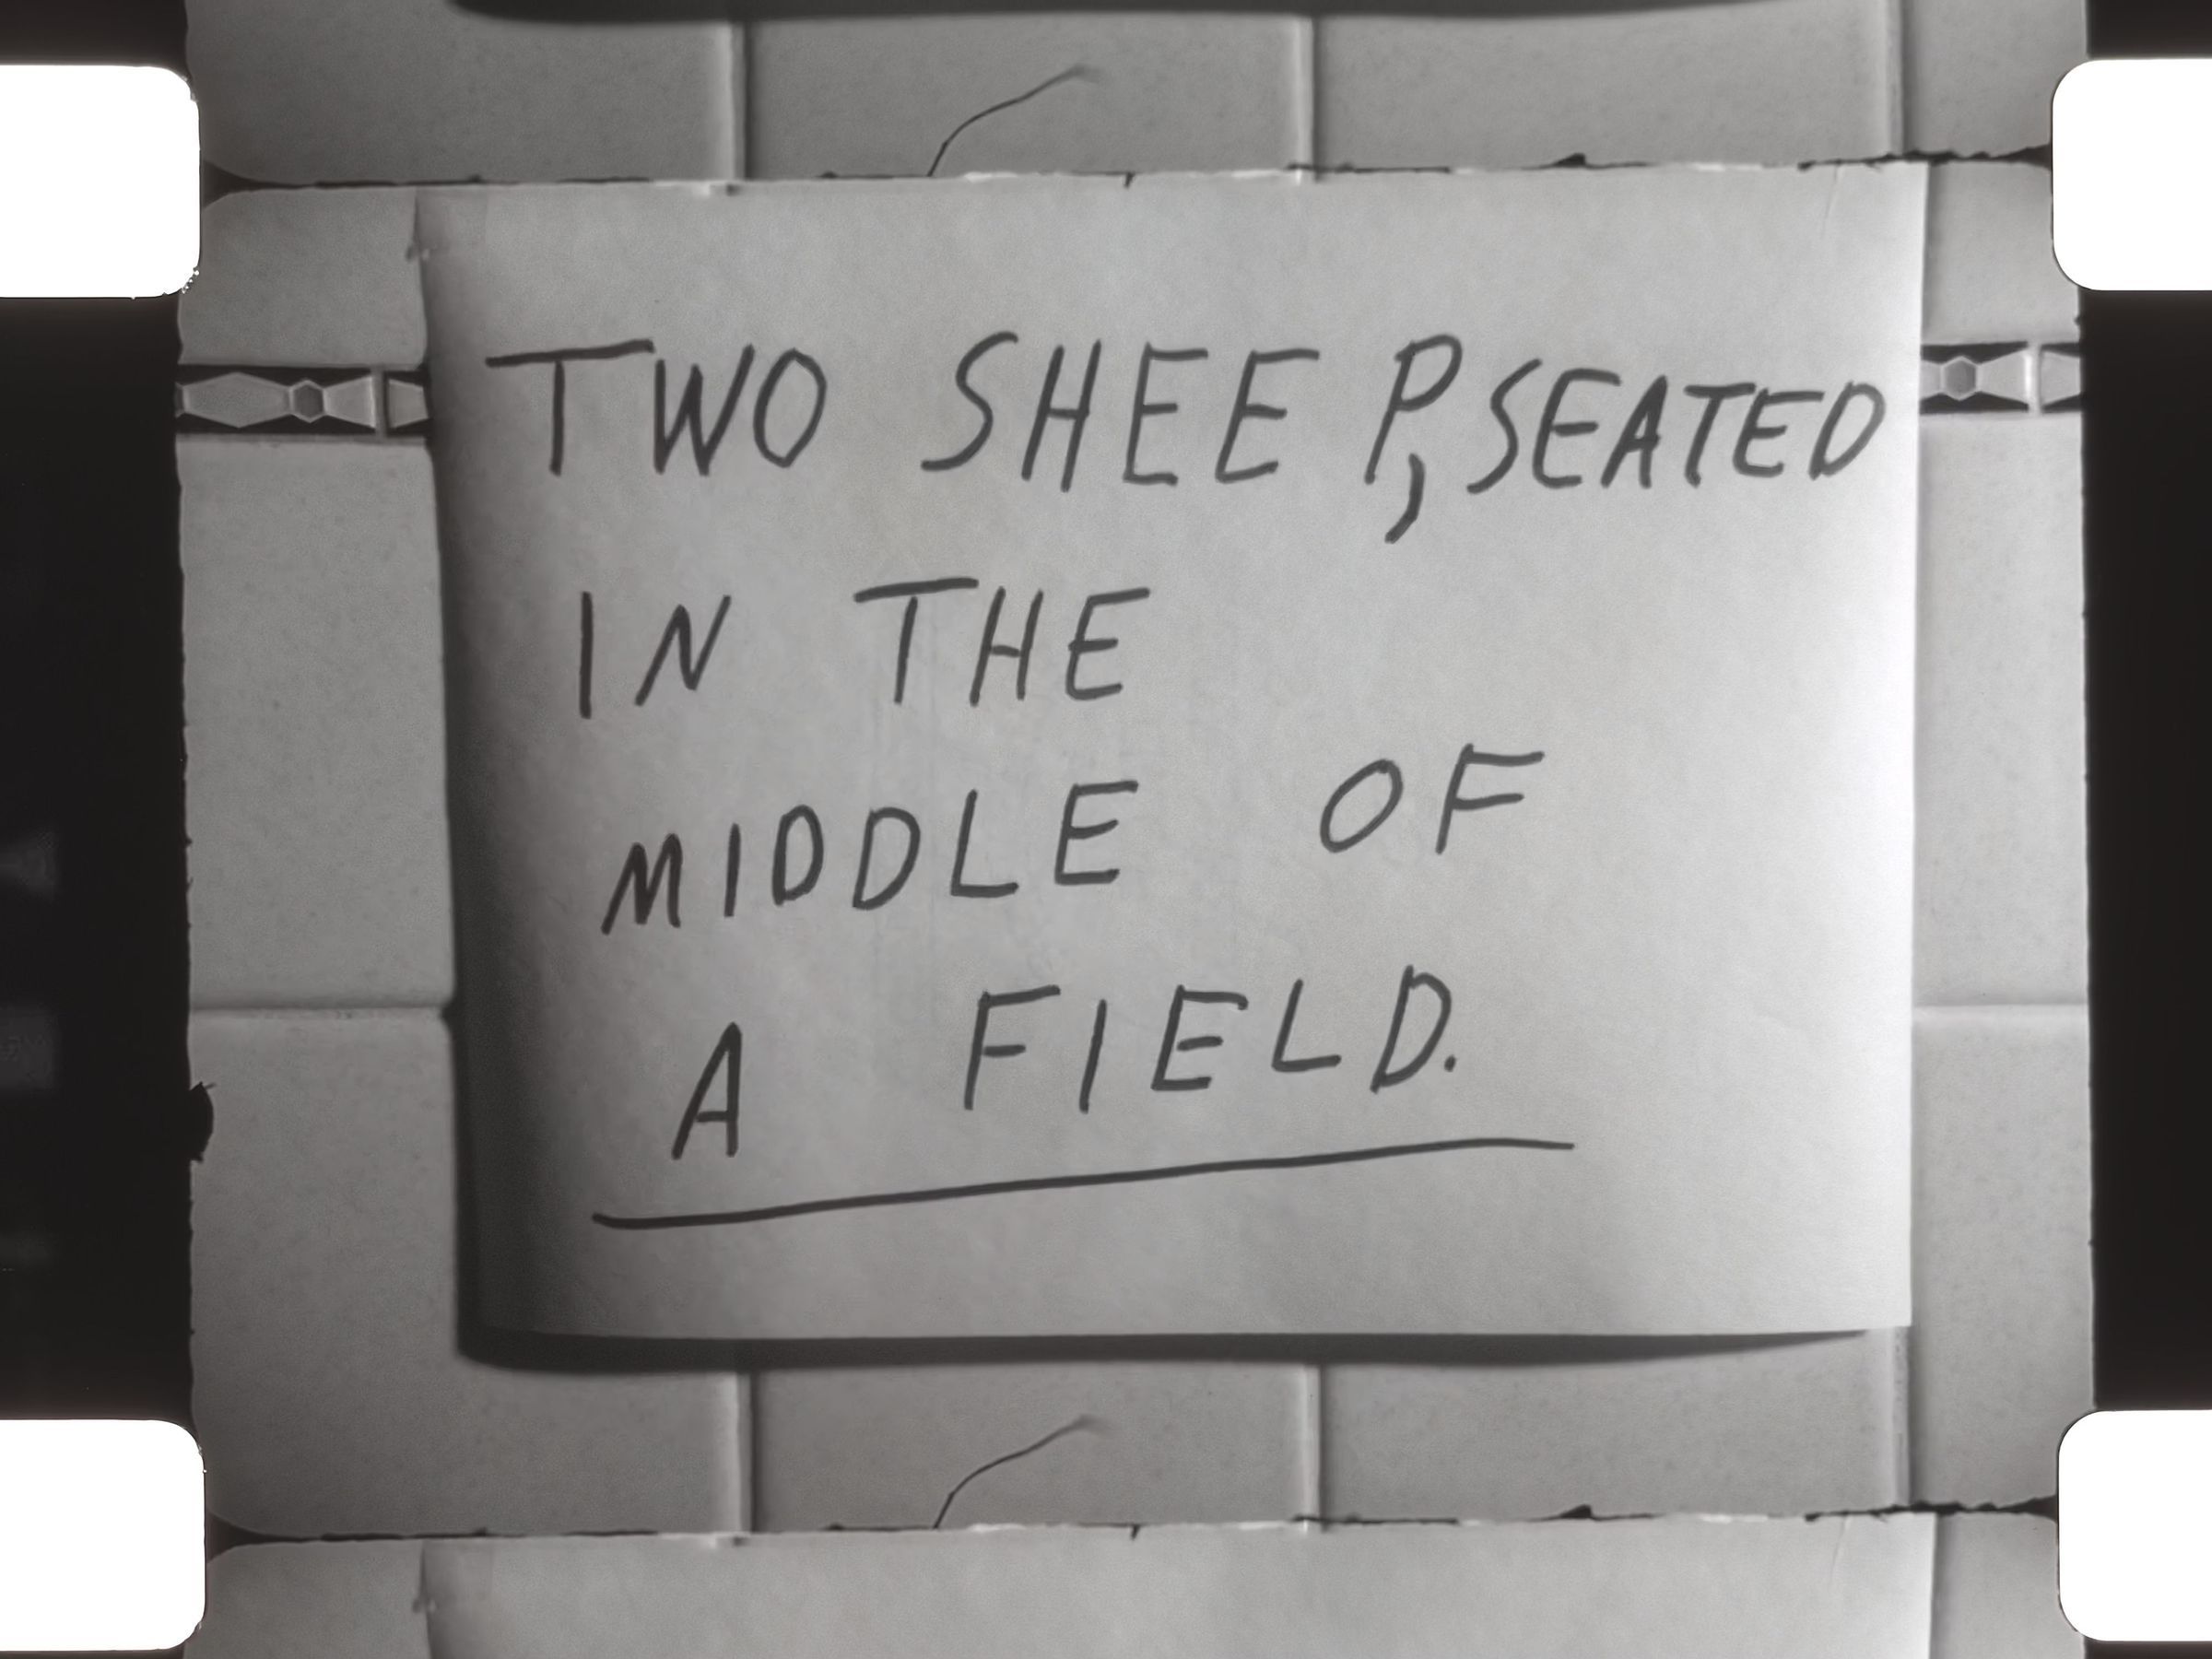 TWO SHEEP, SEATED
IN THE
MIDDLE OF
A FIELD.